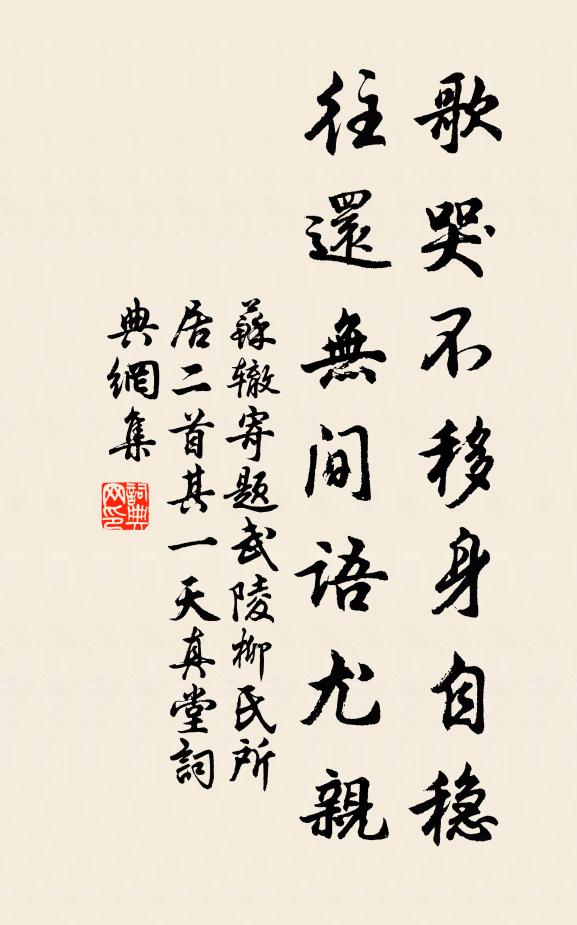 歌哭不移身自稳
往還無間語尤親
蘇辙寄题武陵柳氏所
居二首其一天真堂詞
典網集
詞典网印